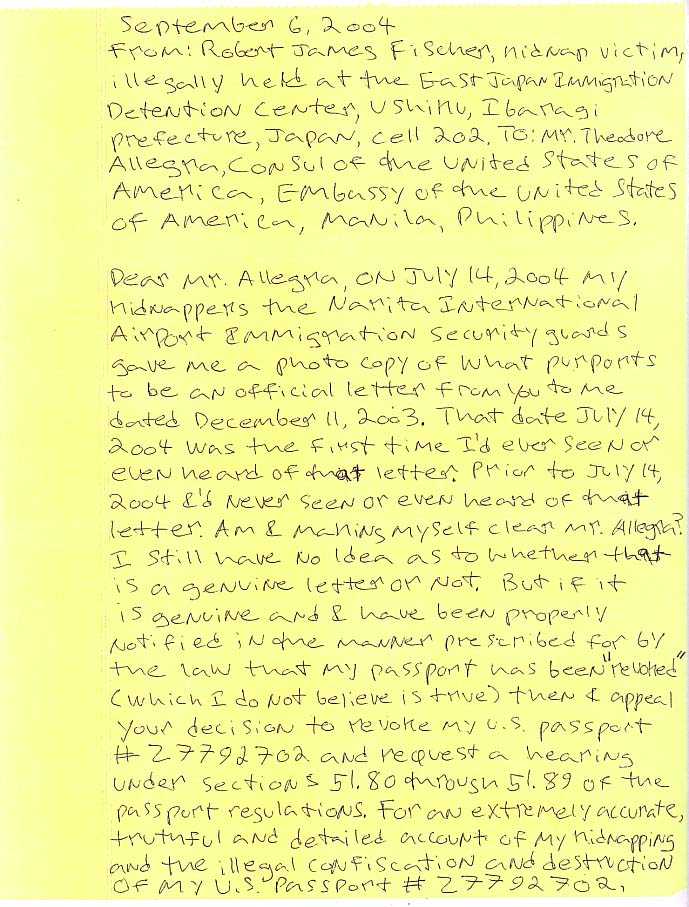 September 6, 2004
From: Robert James Fischer, kidnap victim,
illegally held at the East Japan Immigration
Detention Center, Ushiku, Ibaragi
prefecture, Japan, cell 202. To: Mr. Theodore
Allegra, Consul of the United States of
America, Embassy of the United States
of America, Manila, Philippines.
Dear Mr. Allegra, on July 14, 2004 my
kidnappers the Narita International
Airport Immigration security guards
gave me a photo copy of what purports
to be an official letter from you to me
dated December 11, 2003. That date July 14,
2004 was the first time I'd ever seen or
even heard of that letter. Prior to July 14,
2004 I'd never seen or even heard of that
letter. Am I making myself clear Mr. Allegra?
I still have no idea as to whether that
is a genuine letter or not. But if it
is genuine and I have been properly
notified in the manner prescribed for by
the law that my passport has been "revoked"
(which I do not believe is true) then I appeal
your decision to revoke my U.S. passport
# Z7792702 and request a hearing
under sections 51.80 through 51.89 of the
passport regulations. For an extremely accurate,
truthful and detailed account of my kidnapping
and the illegal confiscation and destruction
of my U.S. Passport # Z7792702,